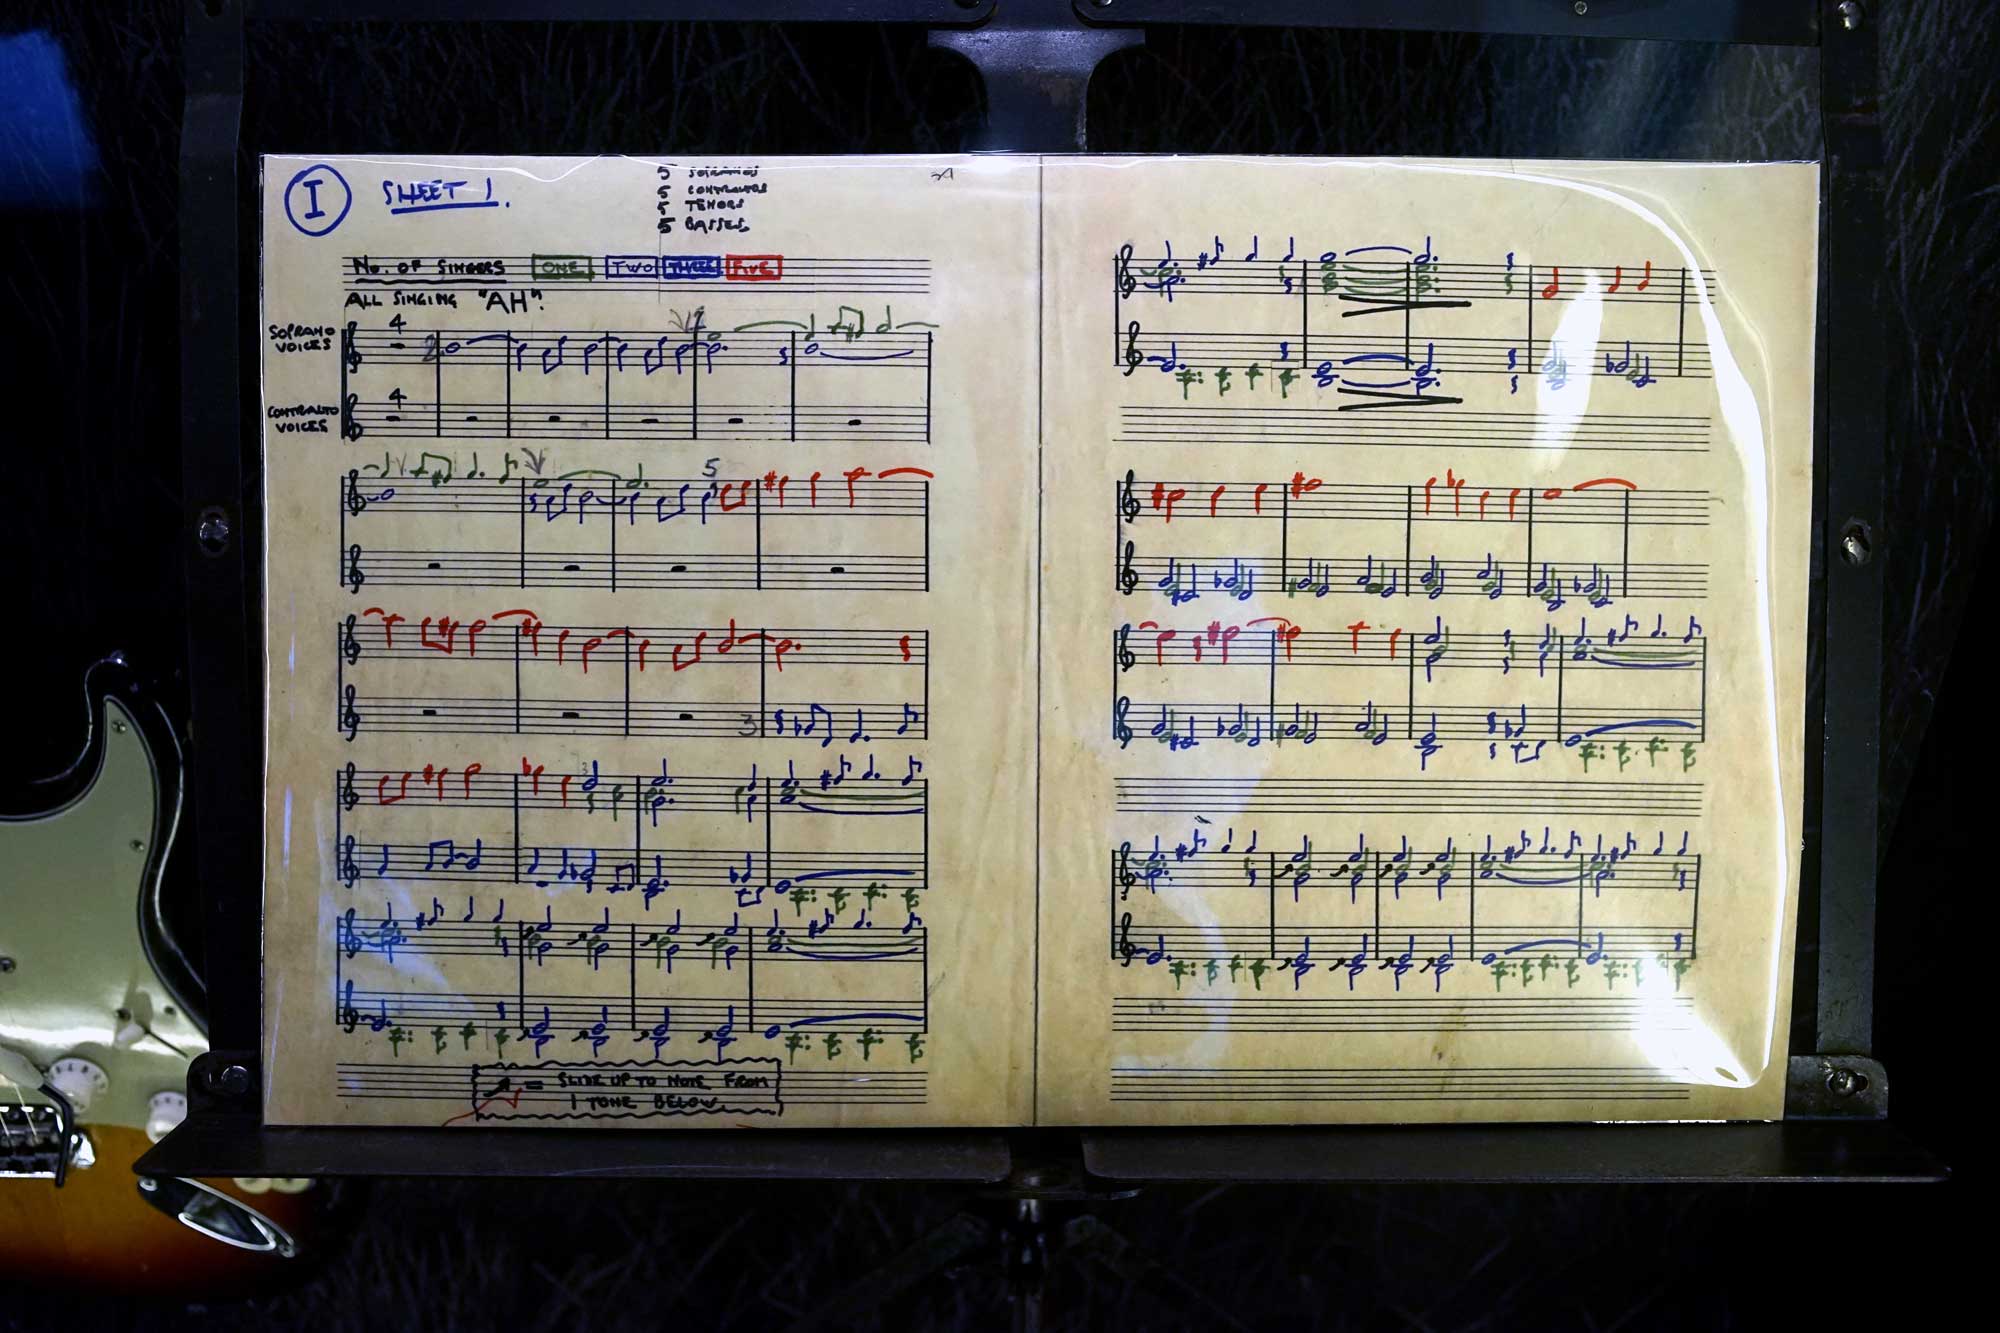 I
SHEET 1.
5 SOPRANOS
5 CONTRALTOS
5 TENORS
5 BASSES
NO. OF SINGERS ONE TWO THREE FIVE
ALL SINGING "AH".
SOPRANO
VOICES
4
2
CONTRALTO
VOICES
4
5
3
3
= SLIDE UP TO NOTE FROM
1 TONE BELOW